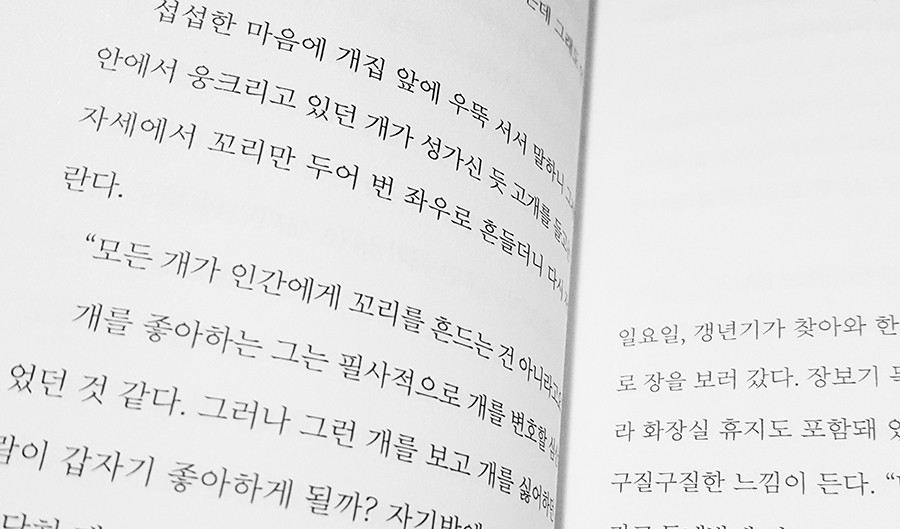 섭섭한 마음에 개집 앞에 우뚝 서서 말하니
안에서 웅크리고 있던 개가 성가신 듯 고개를
자세에서 꼬리만 두어 번 좌우로 흔들더니 다시
란다.
“모든 개가 인간에게 꼬리를 흔드는 건 아니라고요
개를 좋아하는 그는 필사적으로 개를 변호할
었던 것 같다. 그러나 그런 개를 보고 개를 싫어하던
갑자기 좋아하게 될까? 자기밖에
일요일, 갱년기가 찾아와 한
로 장을 보러 갔다. 장보기
라 화장실 휴지도 포함돼
구질구질한 느낌이 든다.